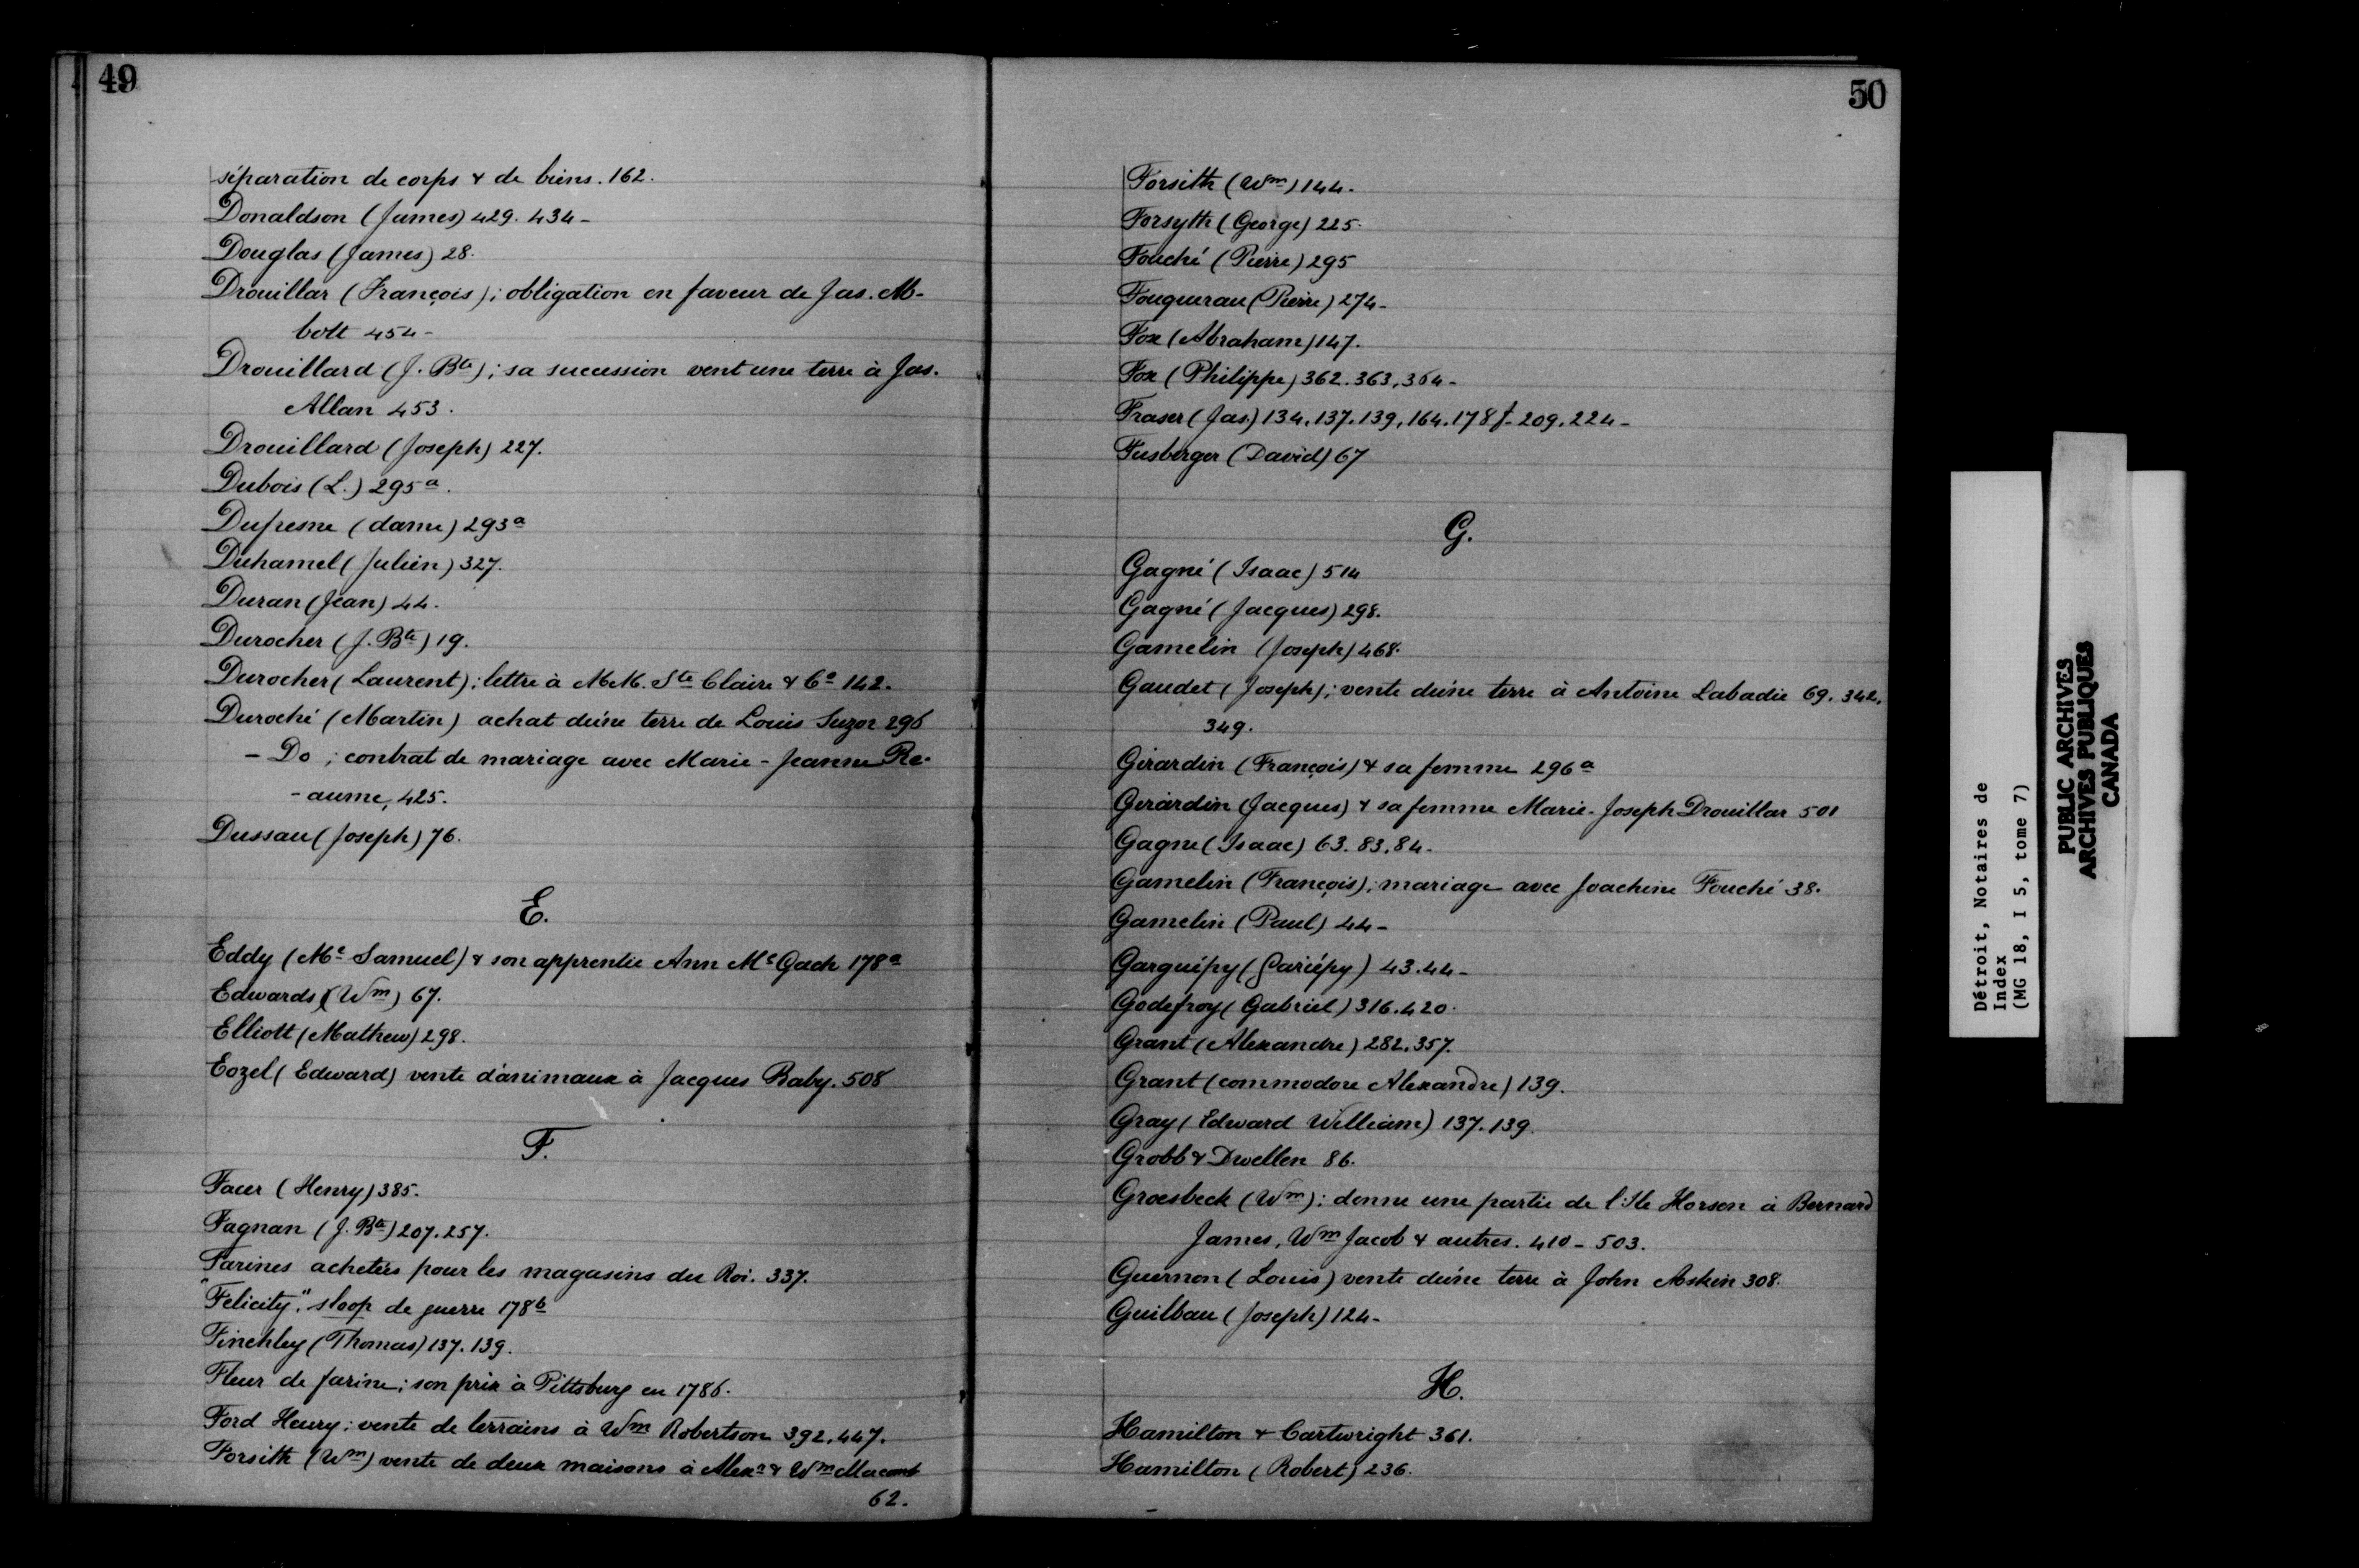 49
séparation de corps & de biens. 162.
Donaldson (James) 429. 434 -
Douglas (James) 28.
Drouillar (François); obligation en faveur de Jas. Ab-
bott 454 -
Drouillard (J. Bte); sa succession vent une terre à Jas.
Allan 453.
Drouillard (Joseph) 227.
Dubois (L.) 295a.
Dufresne (dame) 293a
Duhamel (Julien) 327.
Duran (Jean) 44.
Durocher (J. Bte) 19.
Durocher (Laurent); lettre à MM. Ste Claire & Co 142.
Duroché (Martin) achat d'une terre de Louis Suzor 296
- Do ; contrat de mariage avec Marie-Jeanne Re-
- aume, 425.
Dussau (Joseph) 76.
E.
Eddy (Mc Samuel) & son apprentie Ann McGach 178a
Edwards (Wm) 67.
Elliott (Mathew) 298.
Eozel (Edward) vente d'animaux à Jacques Baby. 508
F.
Facer (Henry) 385.
Fagnan (J. Bte) 207. 257.
Farines achetées pour les magasins du Roi. 337.
"Felicity", sloop de guerre 178b
Finchley (Thomas) 137. 139.
Fleur de farine; son prix à Pittsburg en 1786.
Ford Henry; vente de terrains à Wm Robertson 392. 447.
Forsith (Wm) vente de deux maisons à Alexr & Wm Macomb
62.
50
Forsith (Wm) 144.
Forsyth (George) 225.
Fouché (Pierre) 295
Fouquerau (Pierre) 274 -
Fox (Abraham) 147.
Fox (Philippe) 362. 363, 364 -
Fraser (Jas.) 134. 137. 139, 164. 178f - 209. 224 -
Fusberger (David) 67
G.
Gagné (Isaac) 514
Gagné (Jacques) 298.
Gamelin (Joseph) 468.
Gaudet (Joseph); vente d'une terre à Antoine Labadie 69. 342,
349.
Girardin (François) & sa femme 296a
Gerardin (Jacques) & sa femme Marie-Joseph Drouillar 501
Gagne (Isaac) 63. 83. 84 -
Gamelin (François); mariage avec Joachine Fouché 38.
Gamelin (Paul) 44 -
Garguépy (Gariépy) 43. 44 -
Godefroy (Gabriel) 316. 420.
Grant (Alexandre) 282. 357.
Grant (commodore Alexandre) 139.
Gray (Edward William) 137. 139.
Grobb & Dwellen 86.
Groesbeck (Wm); donne une partie de l'Ile Horson à Bernard
James, Wm Jacob & autres. 410 - 503.
Guernon (Louis) vente d'une terre à John Askin 308.
Guilbau (Joseph) 124 -
H.
Hamilton & Cartwright 361.
Hamilton (Robert) 236.
Détroit, Notaires de
Index
(MG 18, I 5, tome 7)
PUBLIC ARCHIVES
ARCHIVES PUBLIQUES
CANADA